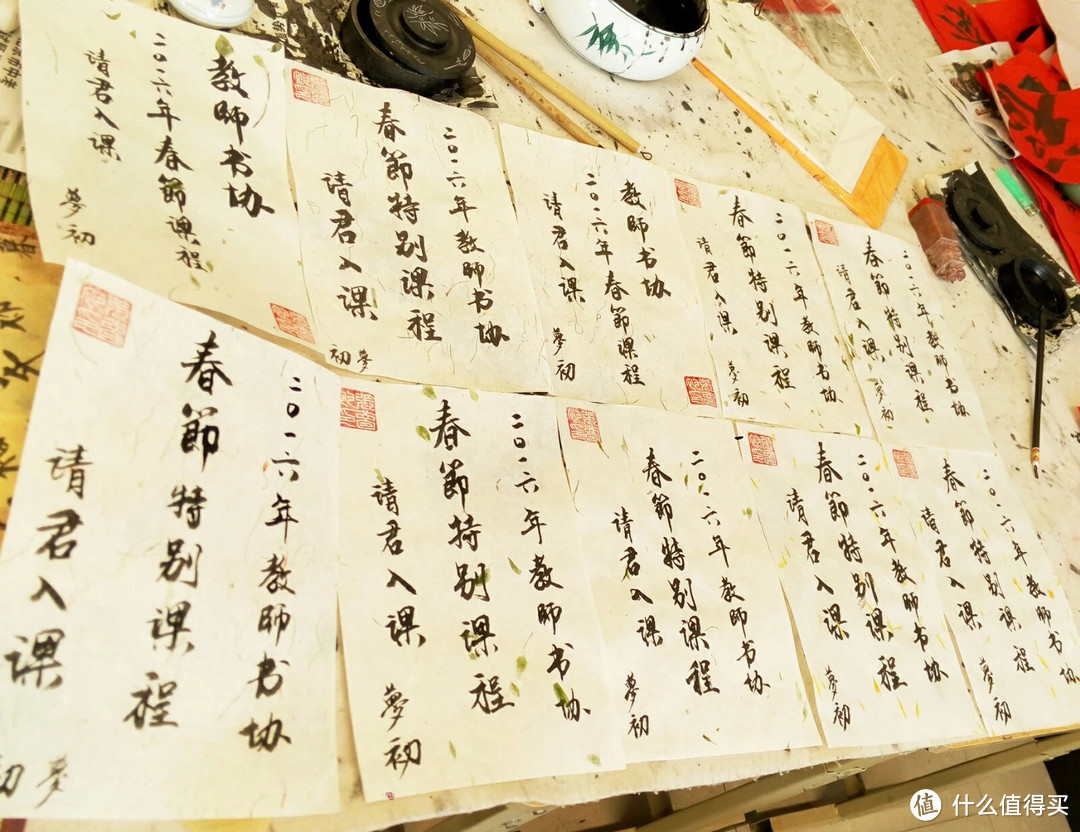 教师书协
二〇一六年春節课程
请君入课
夢初
二〇一六年教师书协
春節特别课程
请君入课
夢初
教师书协
二〇一六年
春節课程
请君入课
夢初
二〇一六年教师书协
春節特别课程
请君入课
二〇一六年教师书协
春節特别课程
请君入课
夢初
二〇一六年教师书协
春節特别课程
请君入课
夢初
二〇一六年教师书协
春節特别课程
请君入课
夢初
二〇一六年教师书协
春節特别课程
请君入课
夢初
二〇一六年教师书协
春節特别课程
请君入课
夢初
二〇一六年教师书协
春節特别课程
请君入课
夢初
值 什么值得买